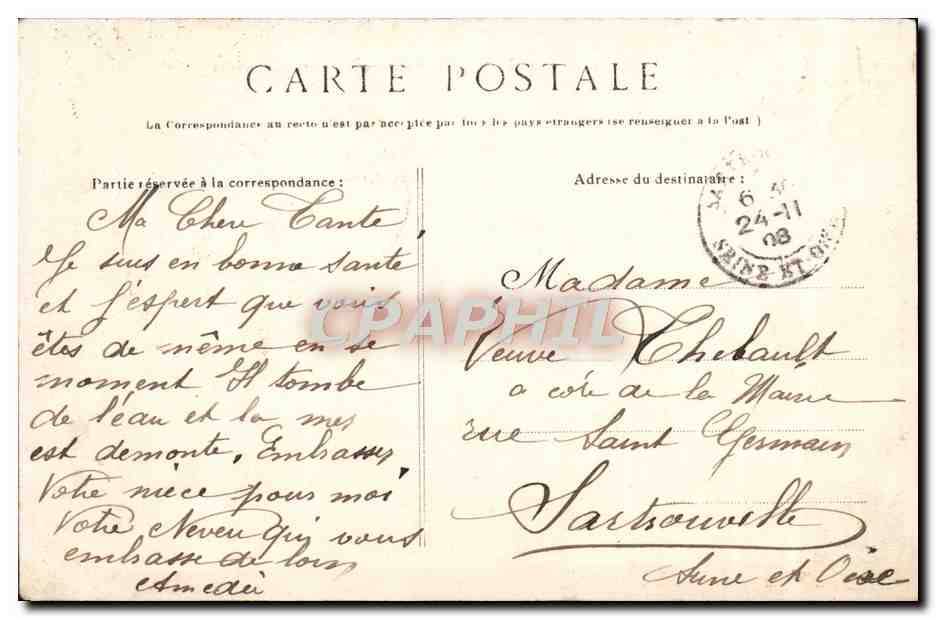 CARTE POSTALE
La Correspondance au recto n'est pas acceptée par tous les pays étrangers (se renseigner à la Post )
Partie réservée à la correspondance :
Ma Chere Tante,
Je suis en bonne sante
et J'espert que vous
êtes de même en se
moment Il tombe
de l'eau et la mer
est demonte. Embrasser
Votre nièce pour moi
Votre Neveu qui vous
embrasse de loin
Amedée
Adresse du destinataire :
24-11
08
SEINE ET OISE
Madame
Veuve Thebault
a côté de la Mairie
rue Saint Germain
Sartrouville
Seine et Oise
CPAPHIL